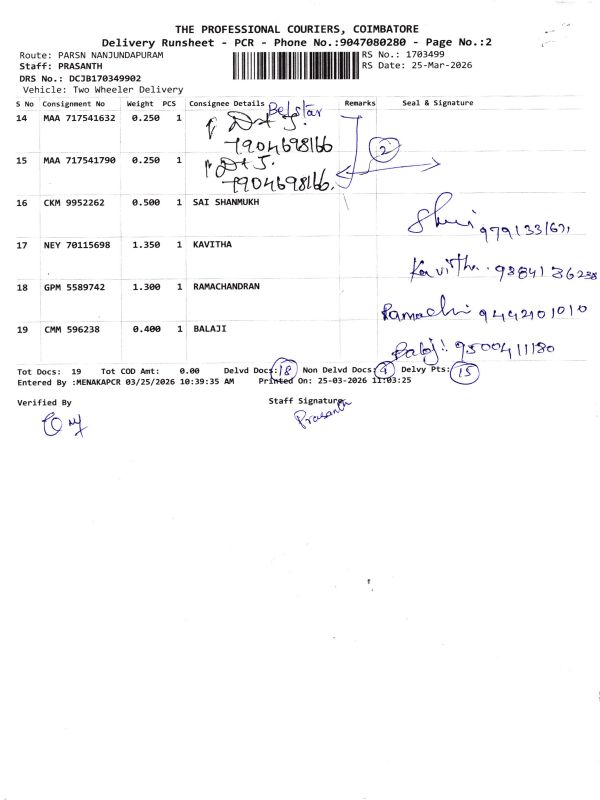 THE PROFESSIONAL COURIERS, COIMBATORE
Delivery Runsheet - PCR - Phone No.:9047080280 - Page No.:2
Route: PARSN NANJUNDAPURAM RS No.: 1703499
Staff: PRASANTH RS Date: 25-Mar-2026
DRS No.: DCJB170349902
Vehicle: Two Wheeler Delivery
S No Consignment No Weight PCS Consignee Details Remarks Seal & Signature
Belstar
14 MAA 717541632 0.250 1
7904698166
2
15 MAA 717541790 0.250 1
7904698166.
16 CKM 9952262 0.500 1 SAI SHANMUKH
17 NEY 70115698 1.350 1 KAVITHA
Kavitha. 9384136238
18 GPM 5589742 1.300 1 RAMACHANDRAN
Ramachi 9442101010
19 CMM 596238 0.400 1 BALAJI
9500411180
Tot Docs: 19 Tot COD Amt: 0.00 Delvd Docs: 18 Non Delvd Docs: Delvy Pts: 15
Entered By :MENAKAPCR 03/25/2026 10:39:35 AM Printed On: 25-03-2026 11:03:25
Verified By Staff Signature
Prasanth